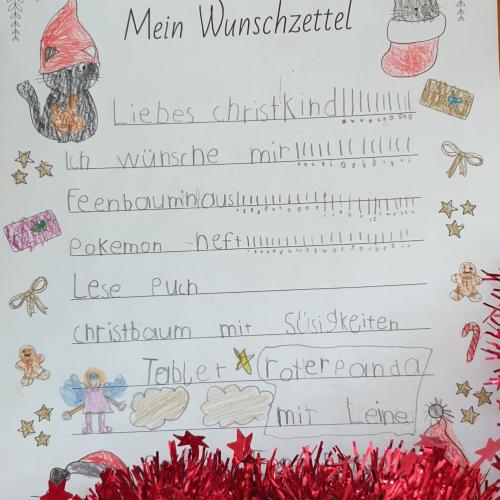 Mein Wunschzettel
Liebes christkind!!!!!!!!!!!
Ich wünsche mir!!!!!!!!!!!!
Feenbaumhaus!!!!!!!!!!!!!!!!!!!!
pokemon -heft!!!!!!!!!!!!!!!!!
Lese Puch
christbaum mit Süsigkeiten
Tablet roterpanda
mit Leine